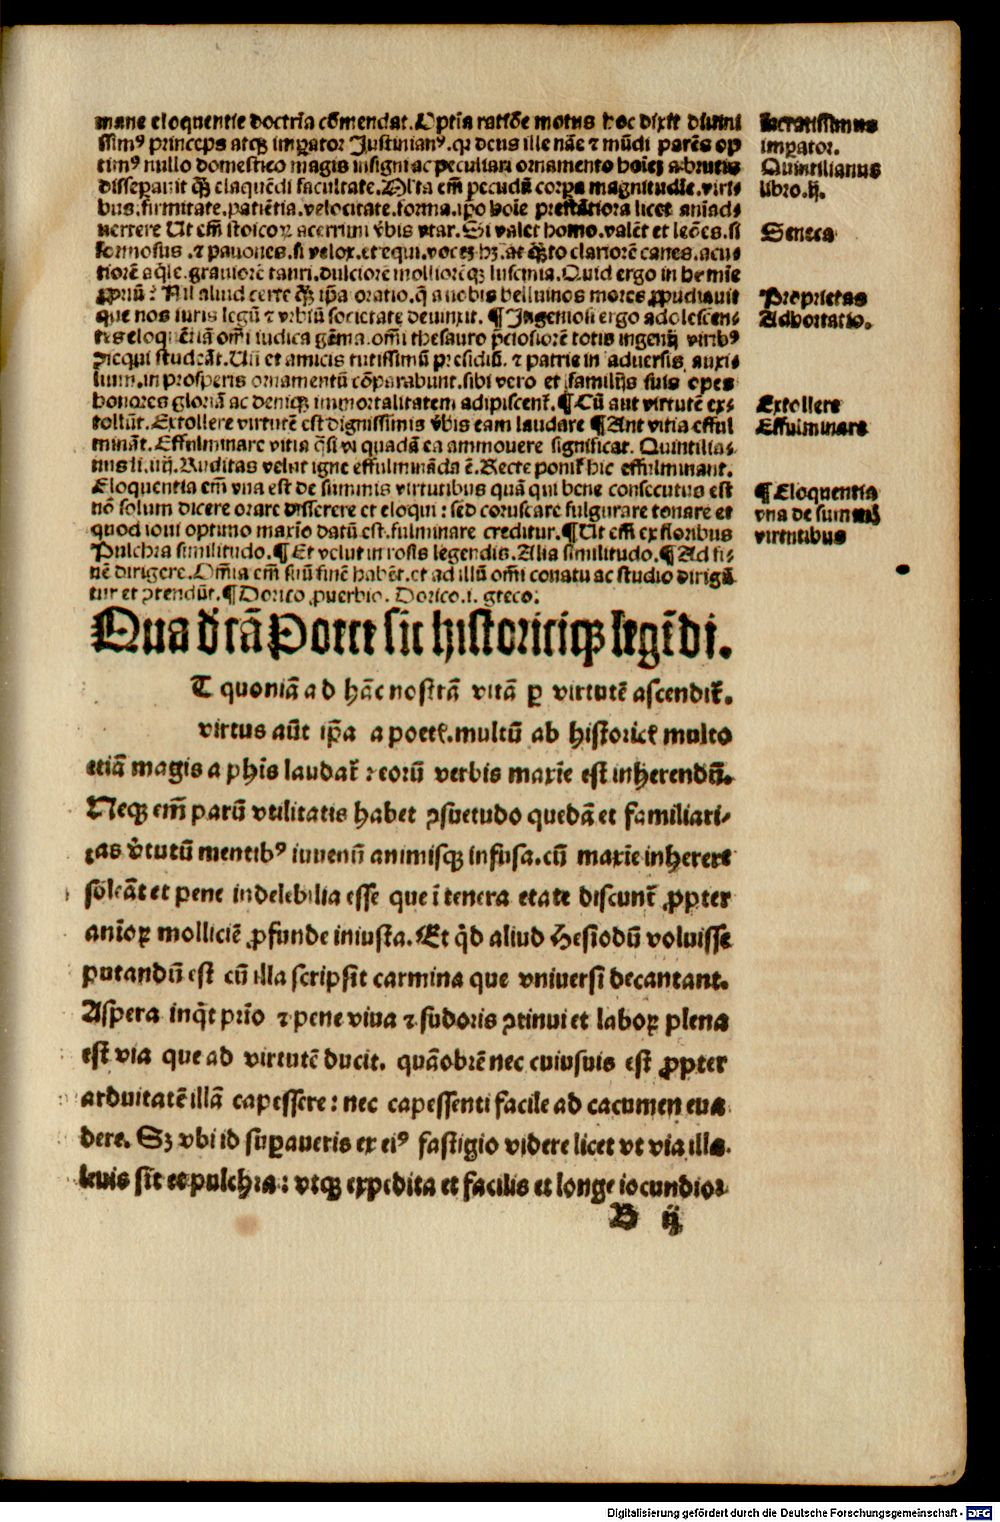 mane eloquentie doctria cōmendat. Optīa ratiōe motus hoc dixit diuini
ssimꝰ princeps atqꝫ imꝑator Justinianꝰ. qꝛ deus ille nāe ⁊ mūdi parēs op
timꝰ nullo domestico magis insigni ac peculiari ornamento hoīeꝫ a brutis
disseꝑauit qꝫ eloquēdi facultate. Alia em̄ pecudū corꝑa magnitudīe. viri-
bus. firmitate. patiētia. velocitate. forma. ipo hoīe prestātiora licet aniad-
uertere Ut em̄ stoicoꝝ acerrimi v̄bis vtar. Si valet homo. valēt et leōes. si
formosus .⁊ pauones. si velox. et equi. voceꝫ hꝫ. at qꝫto clariorē canes. acu-
tiorē aq̄le. grauiorē tauri. dulciorē mollioreqꝫ luscinia. Quid ergo in homīe
ꝓpriū? Nil aliud certe qꝫ ipa oratio. q̄ a nobis belluinos mores ꝓpudiauit
que nos iuris legū ⁊ vrbiū societate deuinxit. ¶ Ingeniosi ergo adolescen-
tes eloquētiā om̄i iudica gēma. om̄i thesauro p̄ciosiorē totis ingenij viribꝰ
ꝯsequi studeāt. Uñ et amicis tutissimū presidiū. ⁊ patrie in aduersis auxi-
lium. in prosperis ornamentū cōparabunt. sibi vero et familijs suis opes
honores gloriā ac deniqꝫ immortalitatem adipiscent̄. ¶ Cū aut virtutē ex-
tollūt. Extollere virtutē est dignissimis v̄bis eam laudare ¶ Aut vitia efful
mināt. Effulminare vitia q̄si vi quadā ea ammouere significat. Quintilia-
nus li. iij. Nuditas velut igne effulmināda ē. Recte ponit̄ hic effulminant.
Eloquentia em̄ vna est de summis virtutibus quā qui bene consecutus est
nō solum dicere orare disserere et eloqui: sed coruscare fulgurare tonare et
quod ioui optimo maxīo datū est. fulminare creditur. ¶ Ut em̄ ex floribus
Pulchra similitudo. ¶ Et velut in rosis legendis. Alia similitudo. ¶ Ad fi-
nē dirigere. Om̄ia em̄ suū finē habēt. et ad illū om̄i conatu ac studio dirigū
tur et ꝯtendūt. ¶ Dorico ꝓuerbio. Dorico .i. greco.
sacratissimus
imꝑator.
Quintilianus
libro. ij.
Seneca
Proprietas
Adhortatio.
Extollere
Effulminare
¶ Eloquentia
vna de summis
virtutibus
Qua d̄ cā Poete sīt historiciqꝫ legēdi.
T quoniā ad hāc nostrā vitā ꝑ virtutē ascendit̄.
virtus aūt ip̄a a poetꝭ. multū ab historicꝭ multo
etiā magis a phīs laudat̄ : eorū verbis maxīe est inherendū.
Neqꝫ em̄ parū vtilitatis habet ꝯsuetudo quedā et familiari-
tas v̄tutū mentibꝰ iuuenū animisqꝫ infusa. cū maxīe inherere
soleāt et pene indelebilia esse que ī tenera etate discunt̄ ꝓpter
anīoꝝ molliciē ꝓfunde iniusta. Et qͥd aliud Hesiodū voluisse
putandū est cū illa scripsit carmina que vniuersi decantant.
Aspera inqͥt prīo ⁊ pene viua ⁊ sudoris ꝯtinui et laboꝝ plena
est via que ad virtutē ducit. quāobrē nec cuiusuis est ꝓpter
arduitatē illā capessere: nec capessenti facile ad cacumen eua
dere. Sꝫ vbi id suꝑaueris ex eiꝰ fastigio videre licet vt via illa.
leuis sīt et pulchra: vtqꝫ expedita et facilis et longe iocundior
B ij
Digitalisierung gefördert durch die Deutsche Forschungsgemeinschaft - DFG